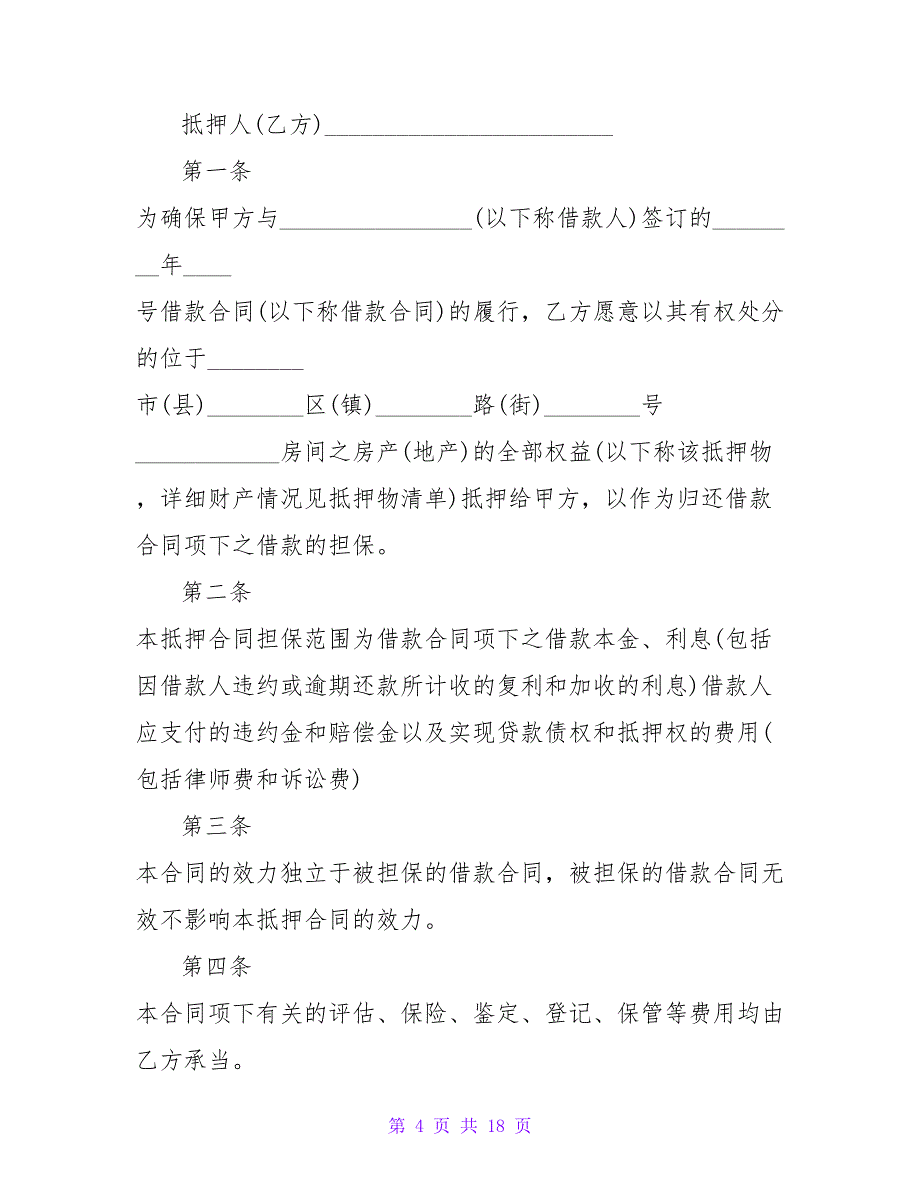 抵押人(乙方)________________________
第一条
为确保甲方与________________(以下称借款人)签订的______
__年____
号借款合同(以下称借款合同)的履行，乙方愿意以其有权处分
的位于________
市(县)________区(镇)________路(街)________号
____________房间之房产(地产)的全部权益(以下称该抵押物
，详细财产情况见抵押物清单)抵押给甲方，以作为归还借款
合同项下之借款的担保。
第二条
本抵押合同担保范围为借款合同项下之借款本金、利息(包括
因借款人违约或逾期还款所计收的复利和加收的利息)借款人
应支付的违约金和赔偿金以及实现贷款债权和抵押权的费用(
包括律师费和诉讼费)
第三条
本合同的效力独立于被担保的借款合同，被担保的借款合同无
效不影响本抵押合同的效力。
第四条
本合同项下有关的评估、保险、鉴定、登记、保管等费用均由
乙方承当。
第 4 页 共 18 页